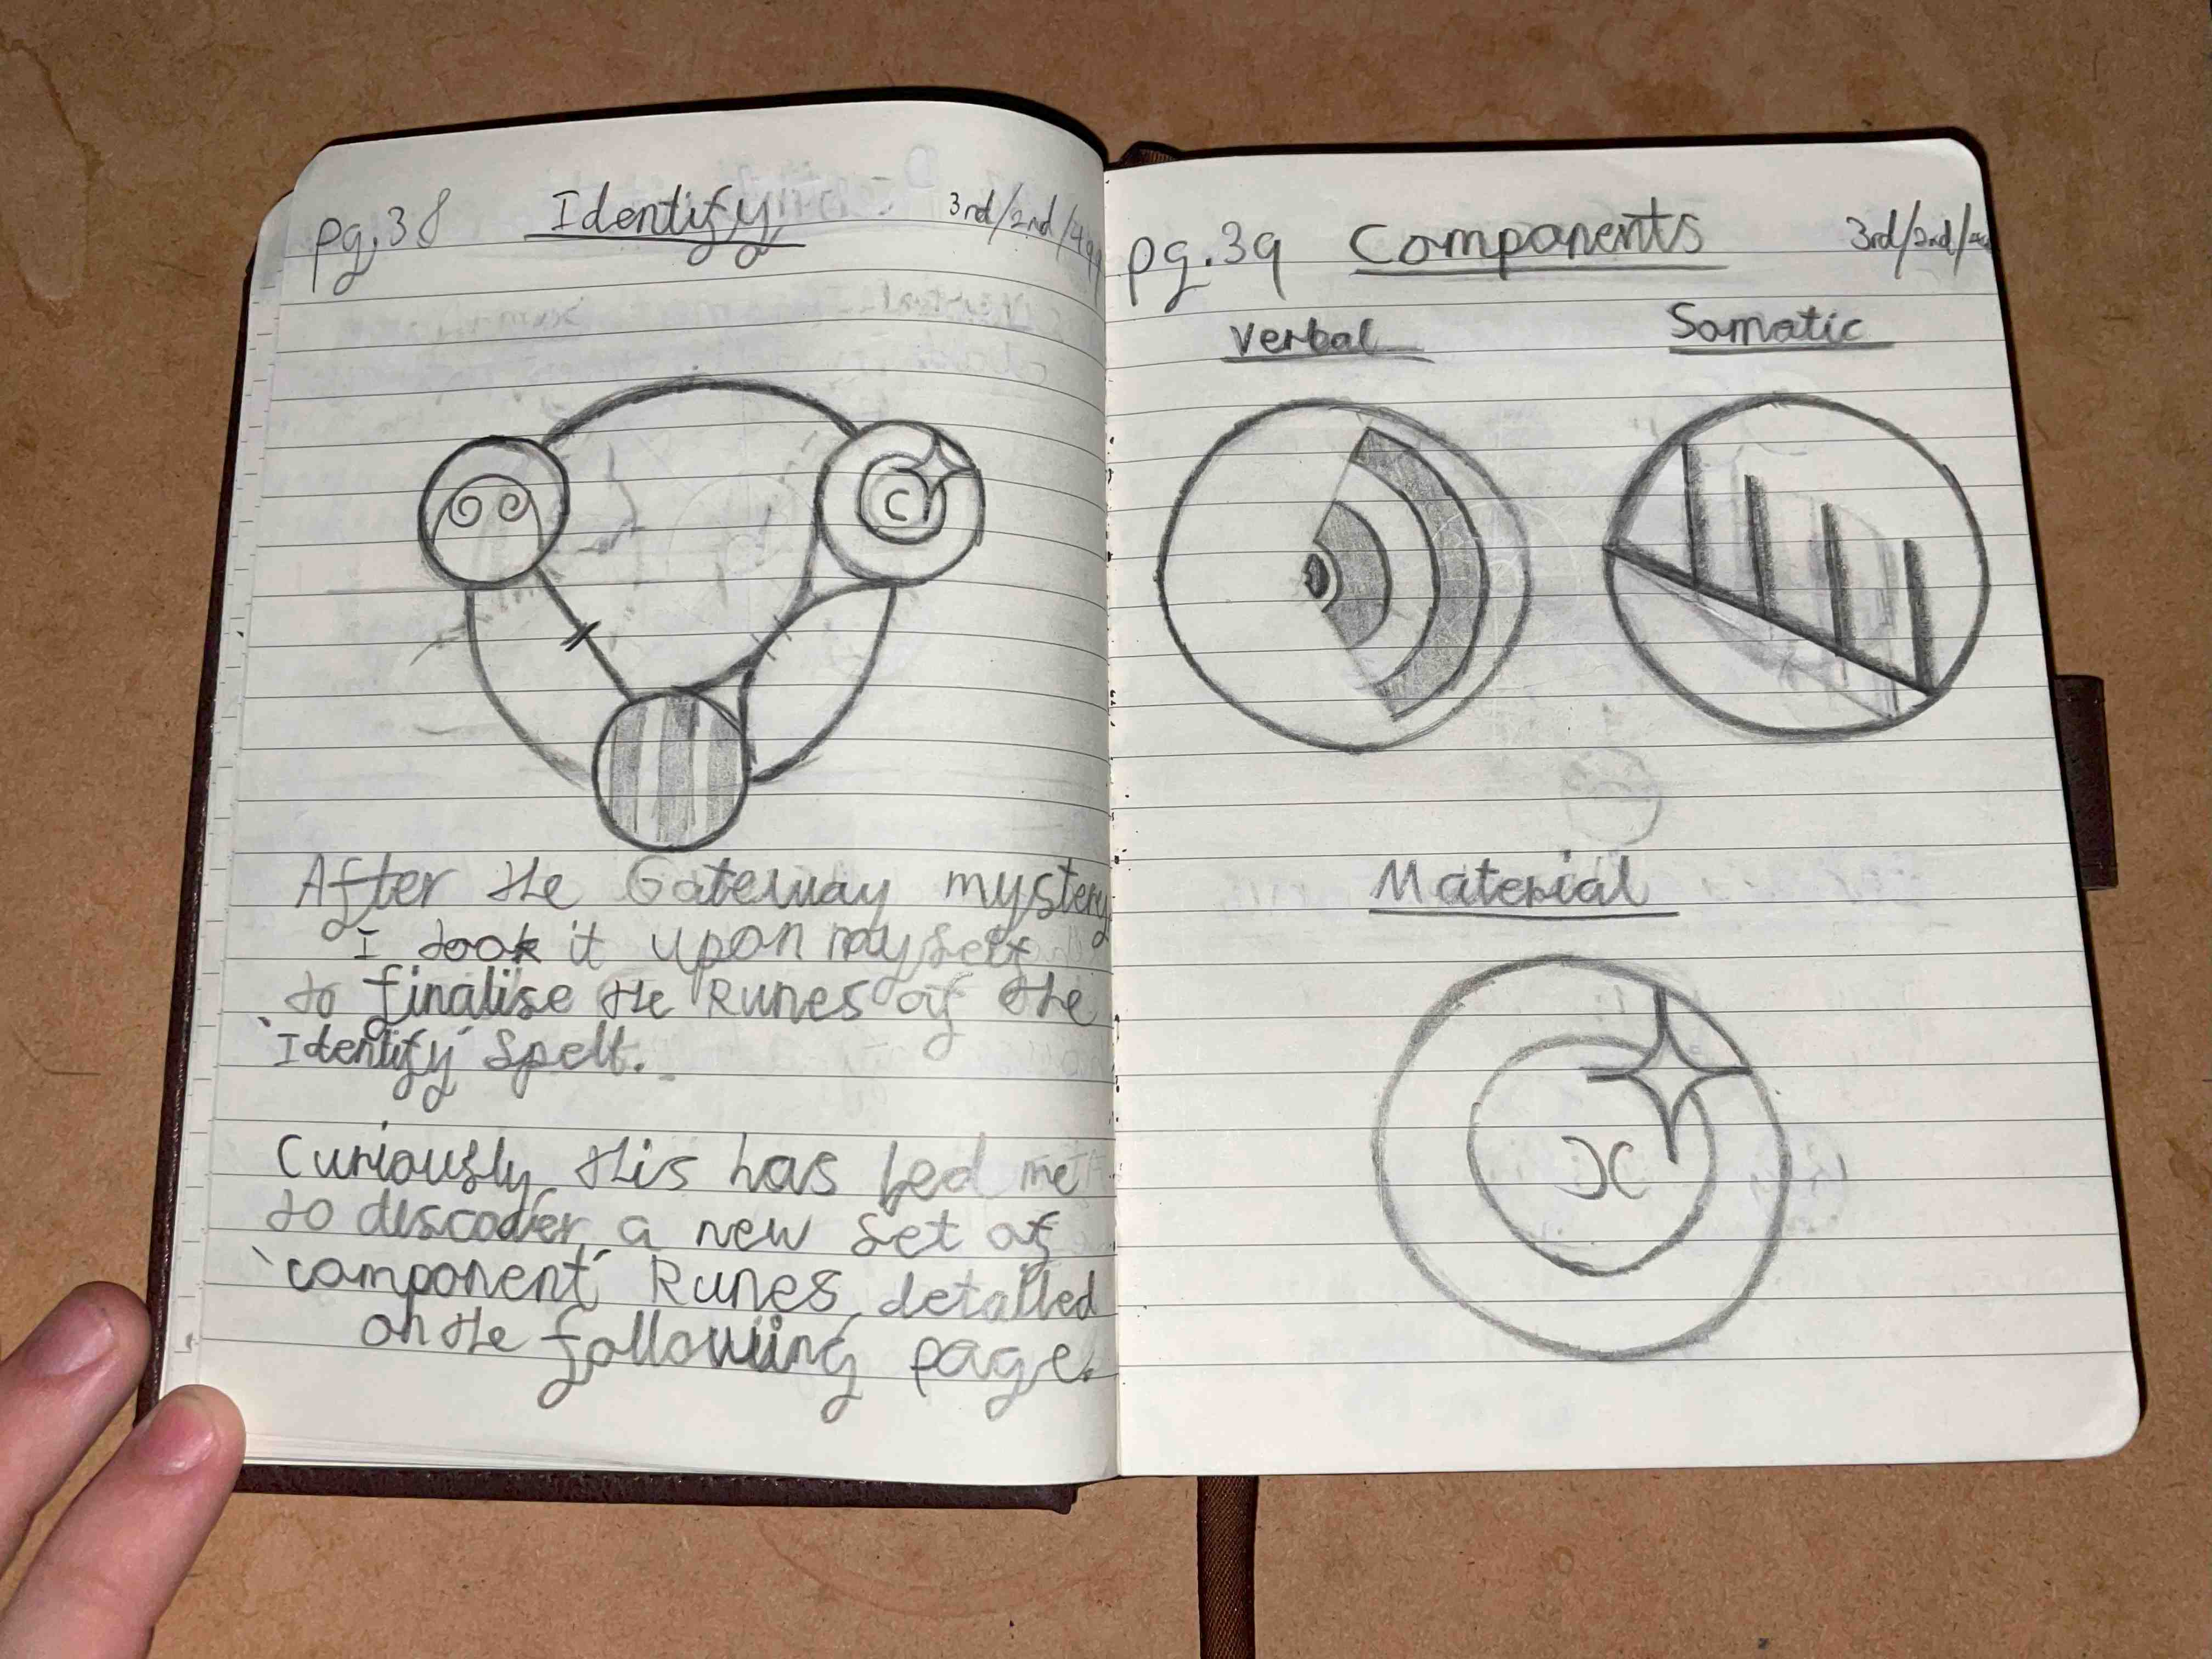 pg.38 Identify 3rd/2nd/499
After the Gateway mystery
I took it upon myself
to finalise the Runes of the
'Identify' Spell.
Curiously, this has led me
to discover a new set of
'component' Runes, detailed
on the following page.
pg.39 Components 3rd/2nd/
Verbal Somatic
Material